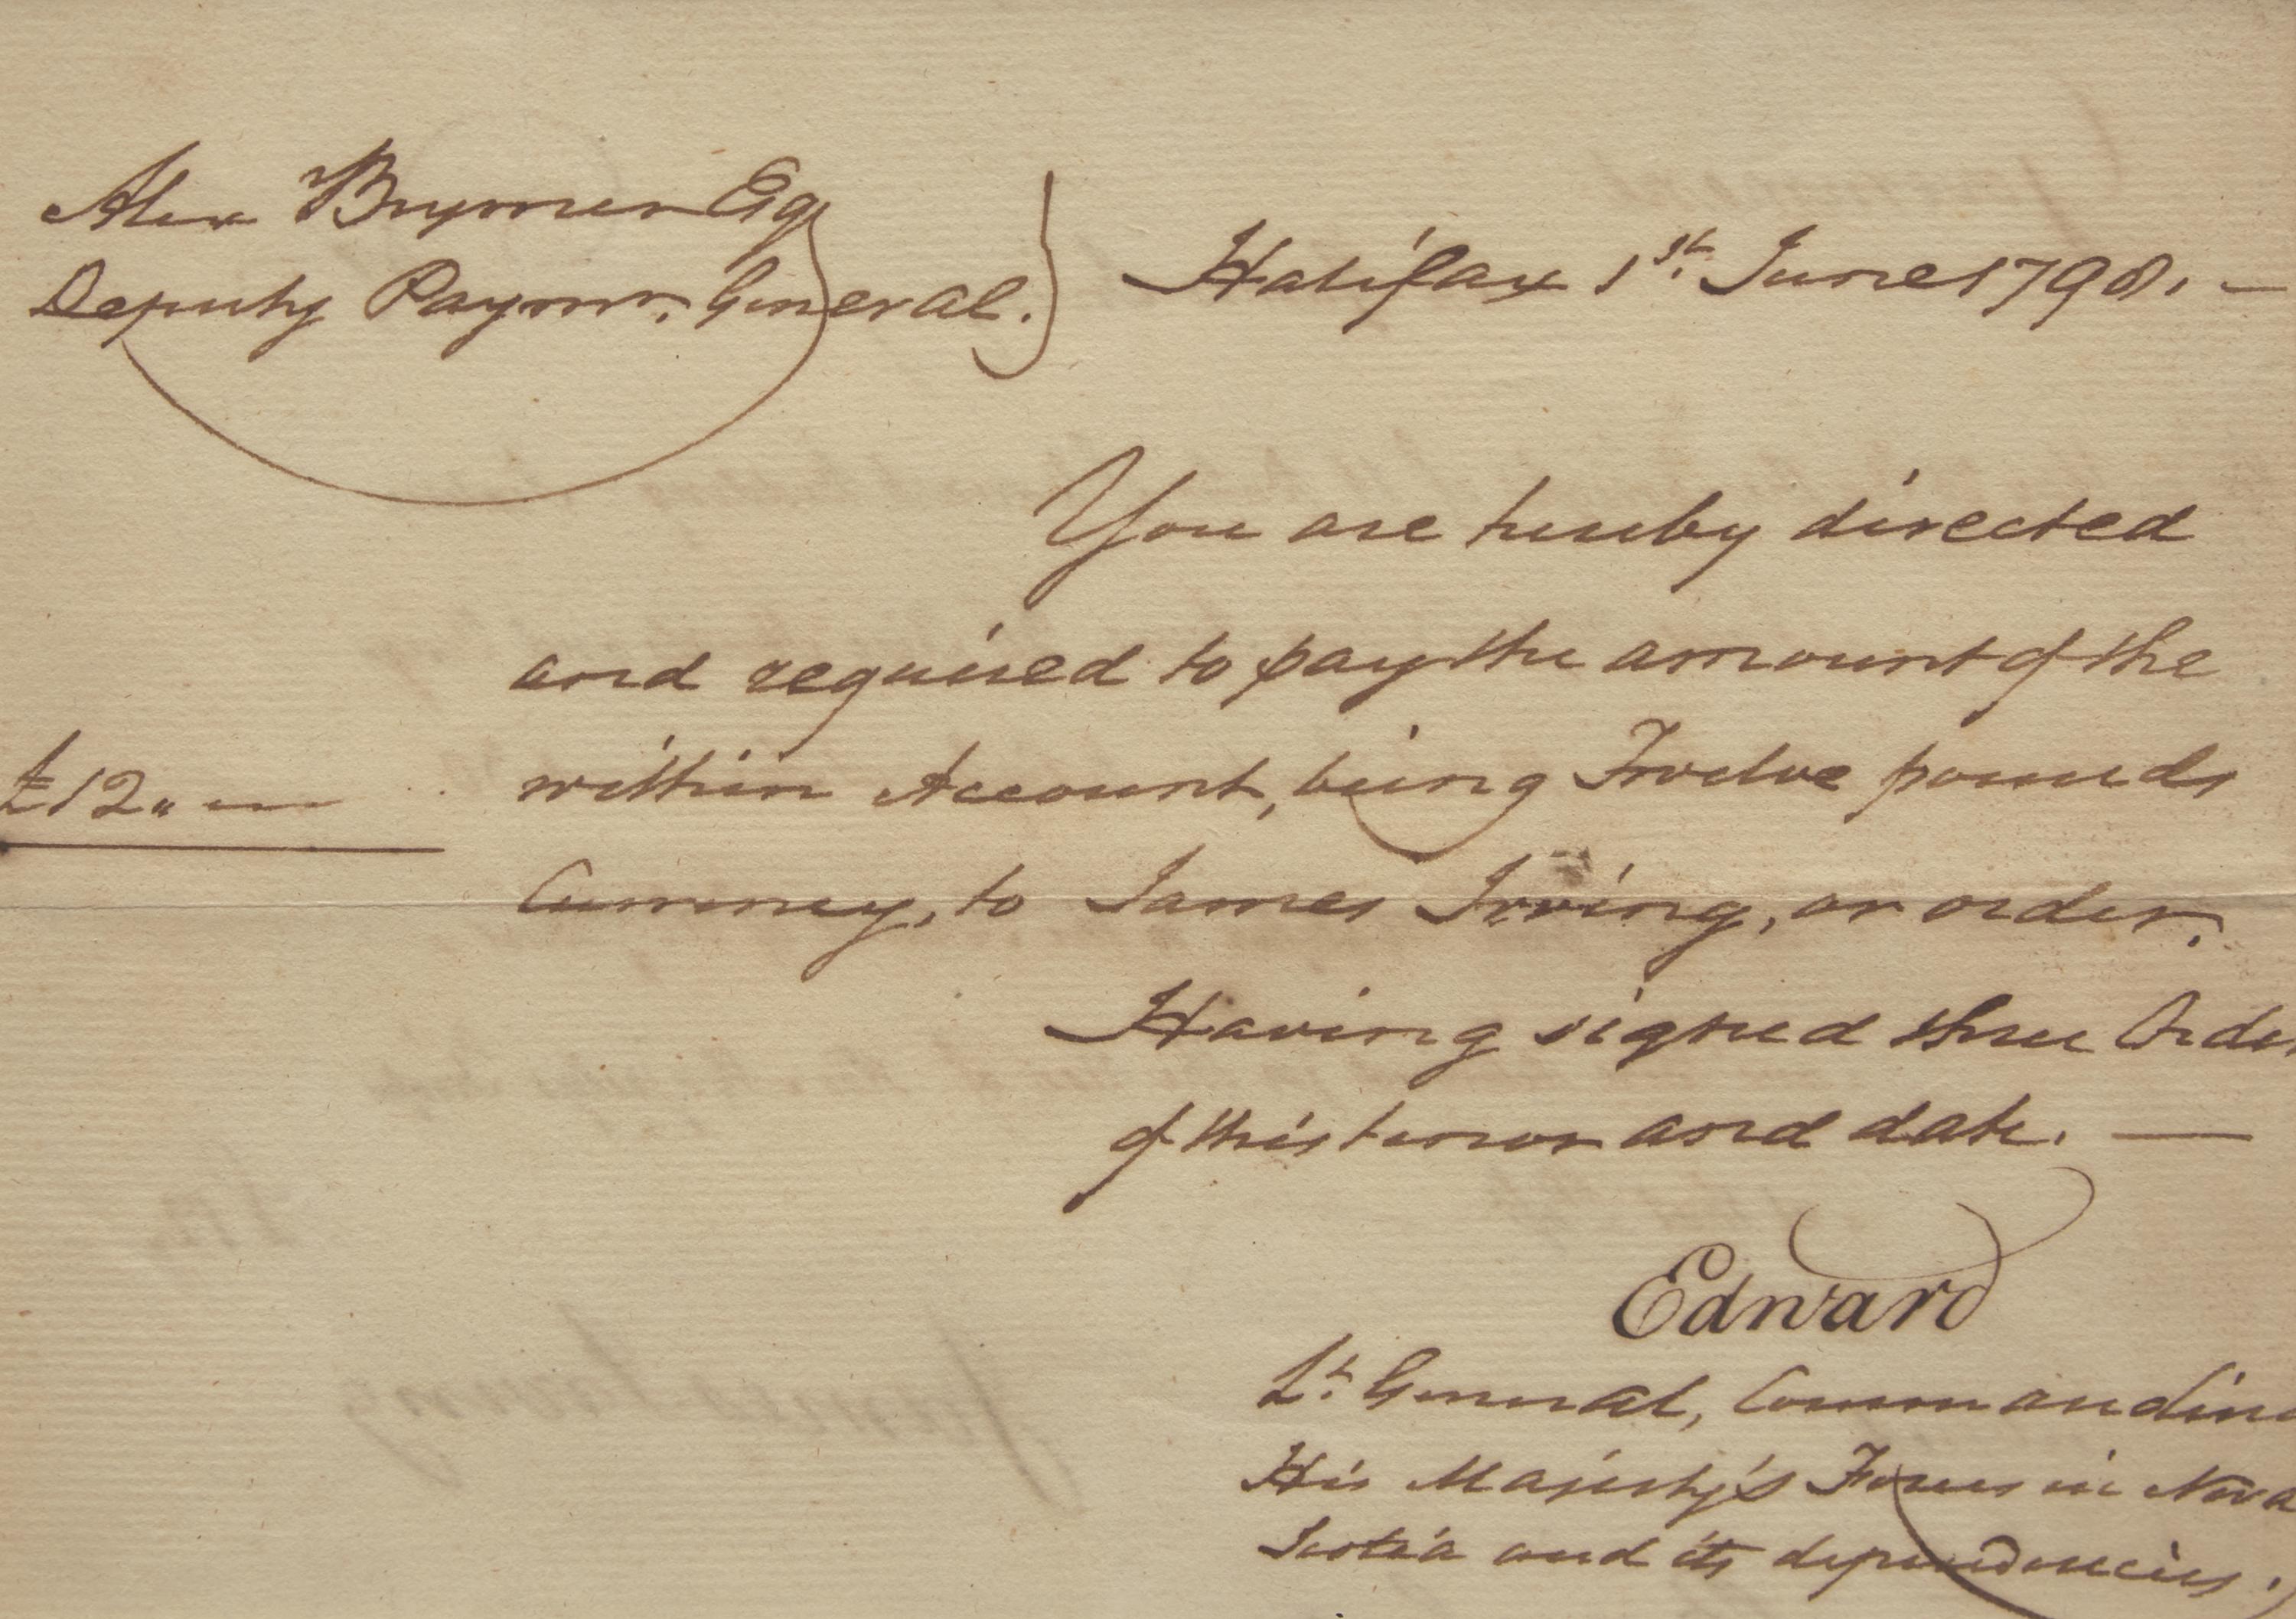 Alex Brymer Esqr
Deputy Paymr. General.
Halifax 1st. June 1798. —
You are hereby directed
and required to pay the amount of the
£12 „ —
within Account, being Twelve pounds
Currency, to James Irving, or order.
Having signed three Orders
of this tenor and date. —
Edward
Lt. General, Commanding
His Majesty's Forces in Nova
Scotia and its dependencies.